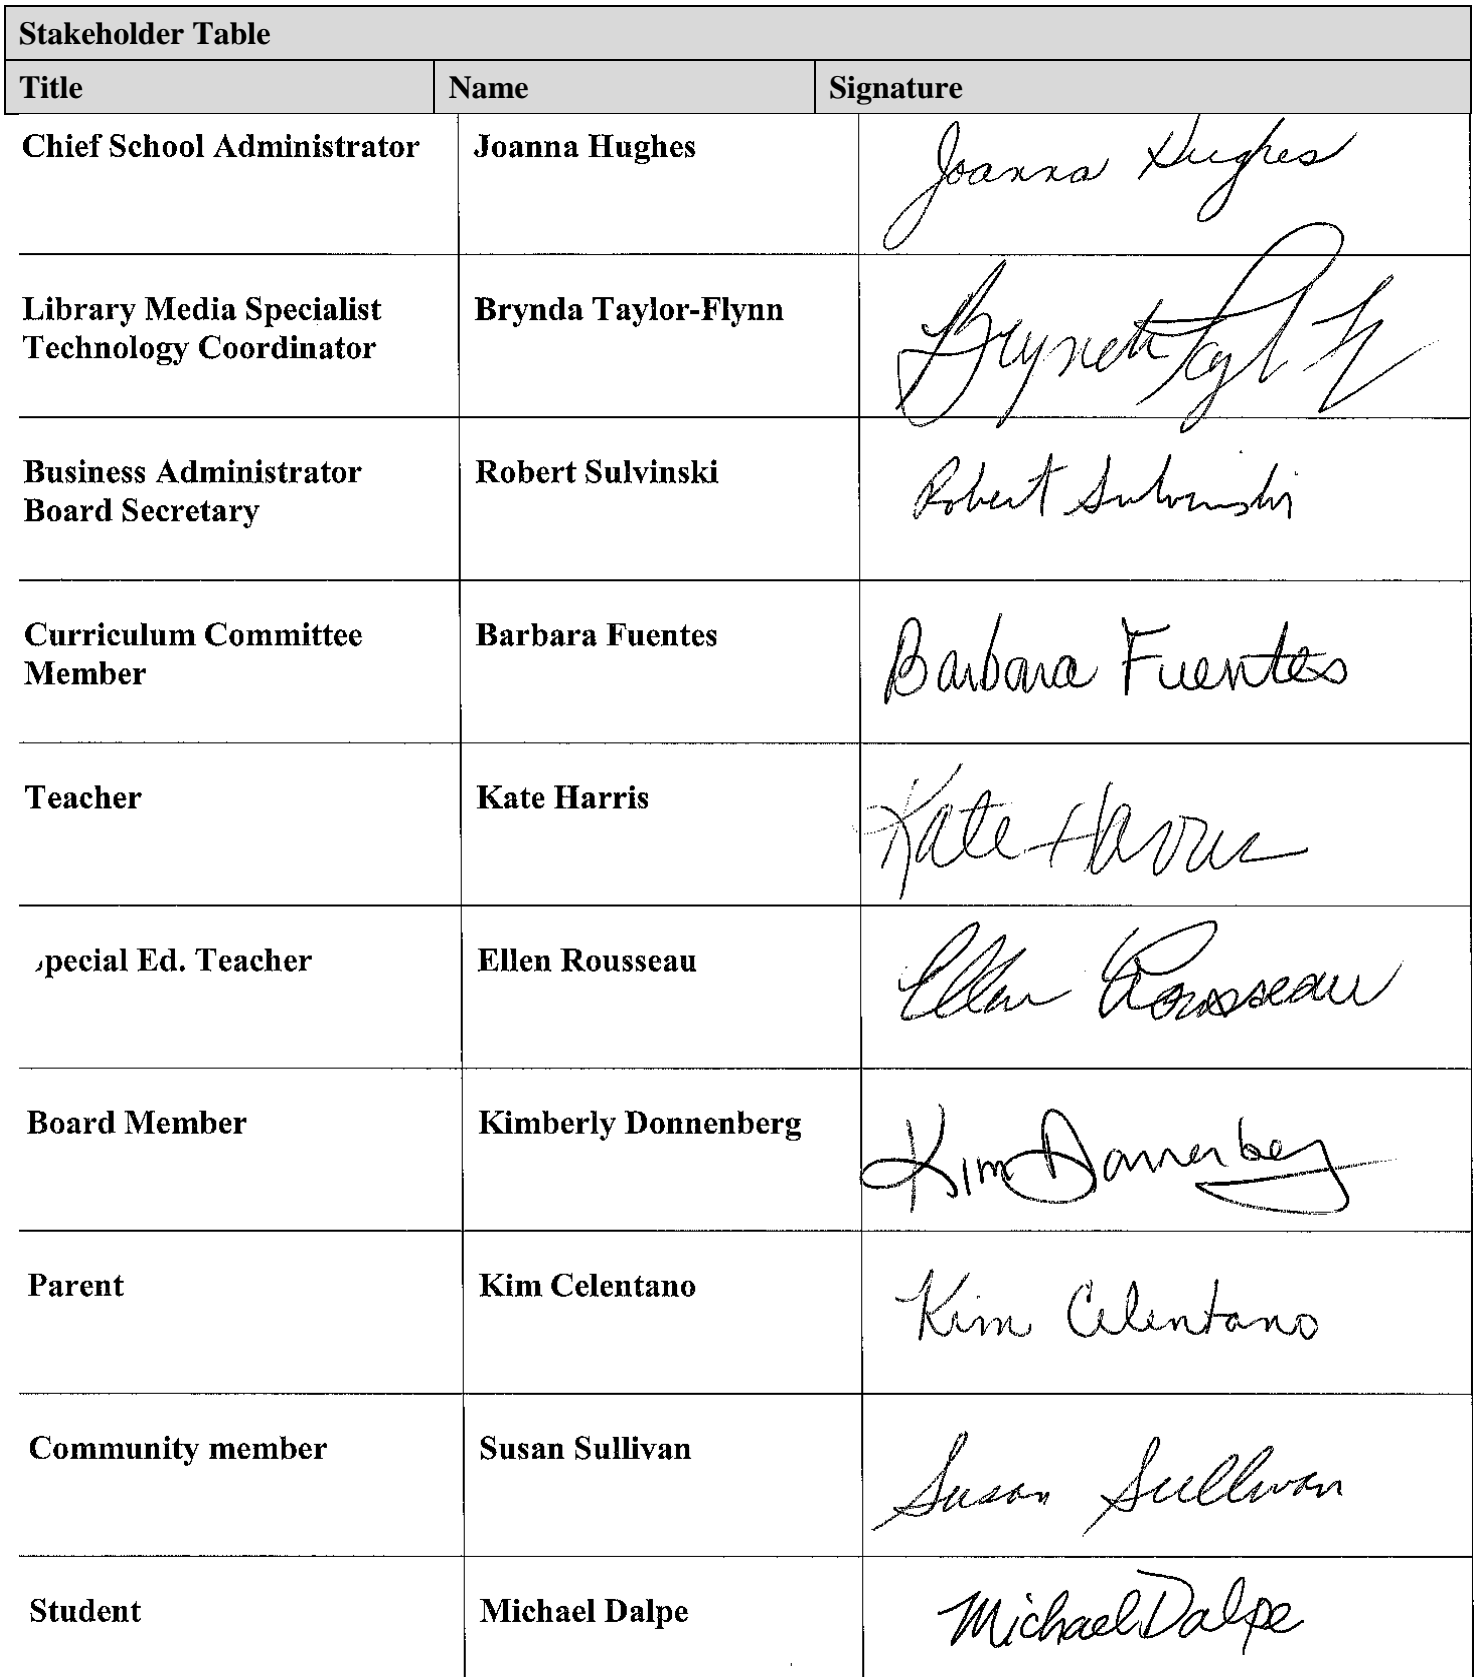 Stakeholder Table
Title Name Signature
Chief School Administrator Joanna Hughes Joanna Hughes
Library Media Specialist Brynda Taylor-Flynn
Technology Coordinator
Business Administrator Robert Sulvinski Robert Sulvinski
Board Secretary
Curriculum Committee Barbara Fuentes Barbara Fuentes
Member
Teacher Kate Harris Kate Harris
pecial Ed. Teacher Ellen Rousseau Ellen Rousseau
Board Member Kimberly Donnenberg Kim Donnenberg
Parent Kim Celentano Kim Celentano
Community member Susan Sullivan Susan Sullivan
Student Michael Dalpe Michael Dalpe